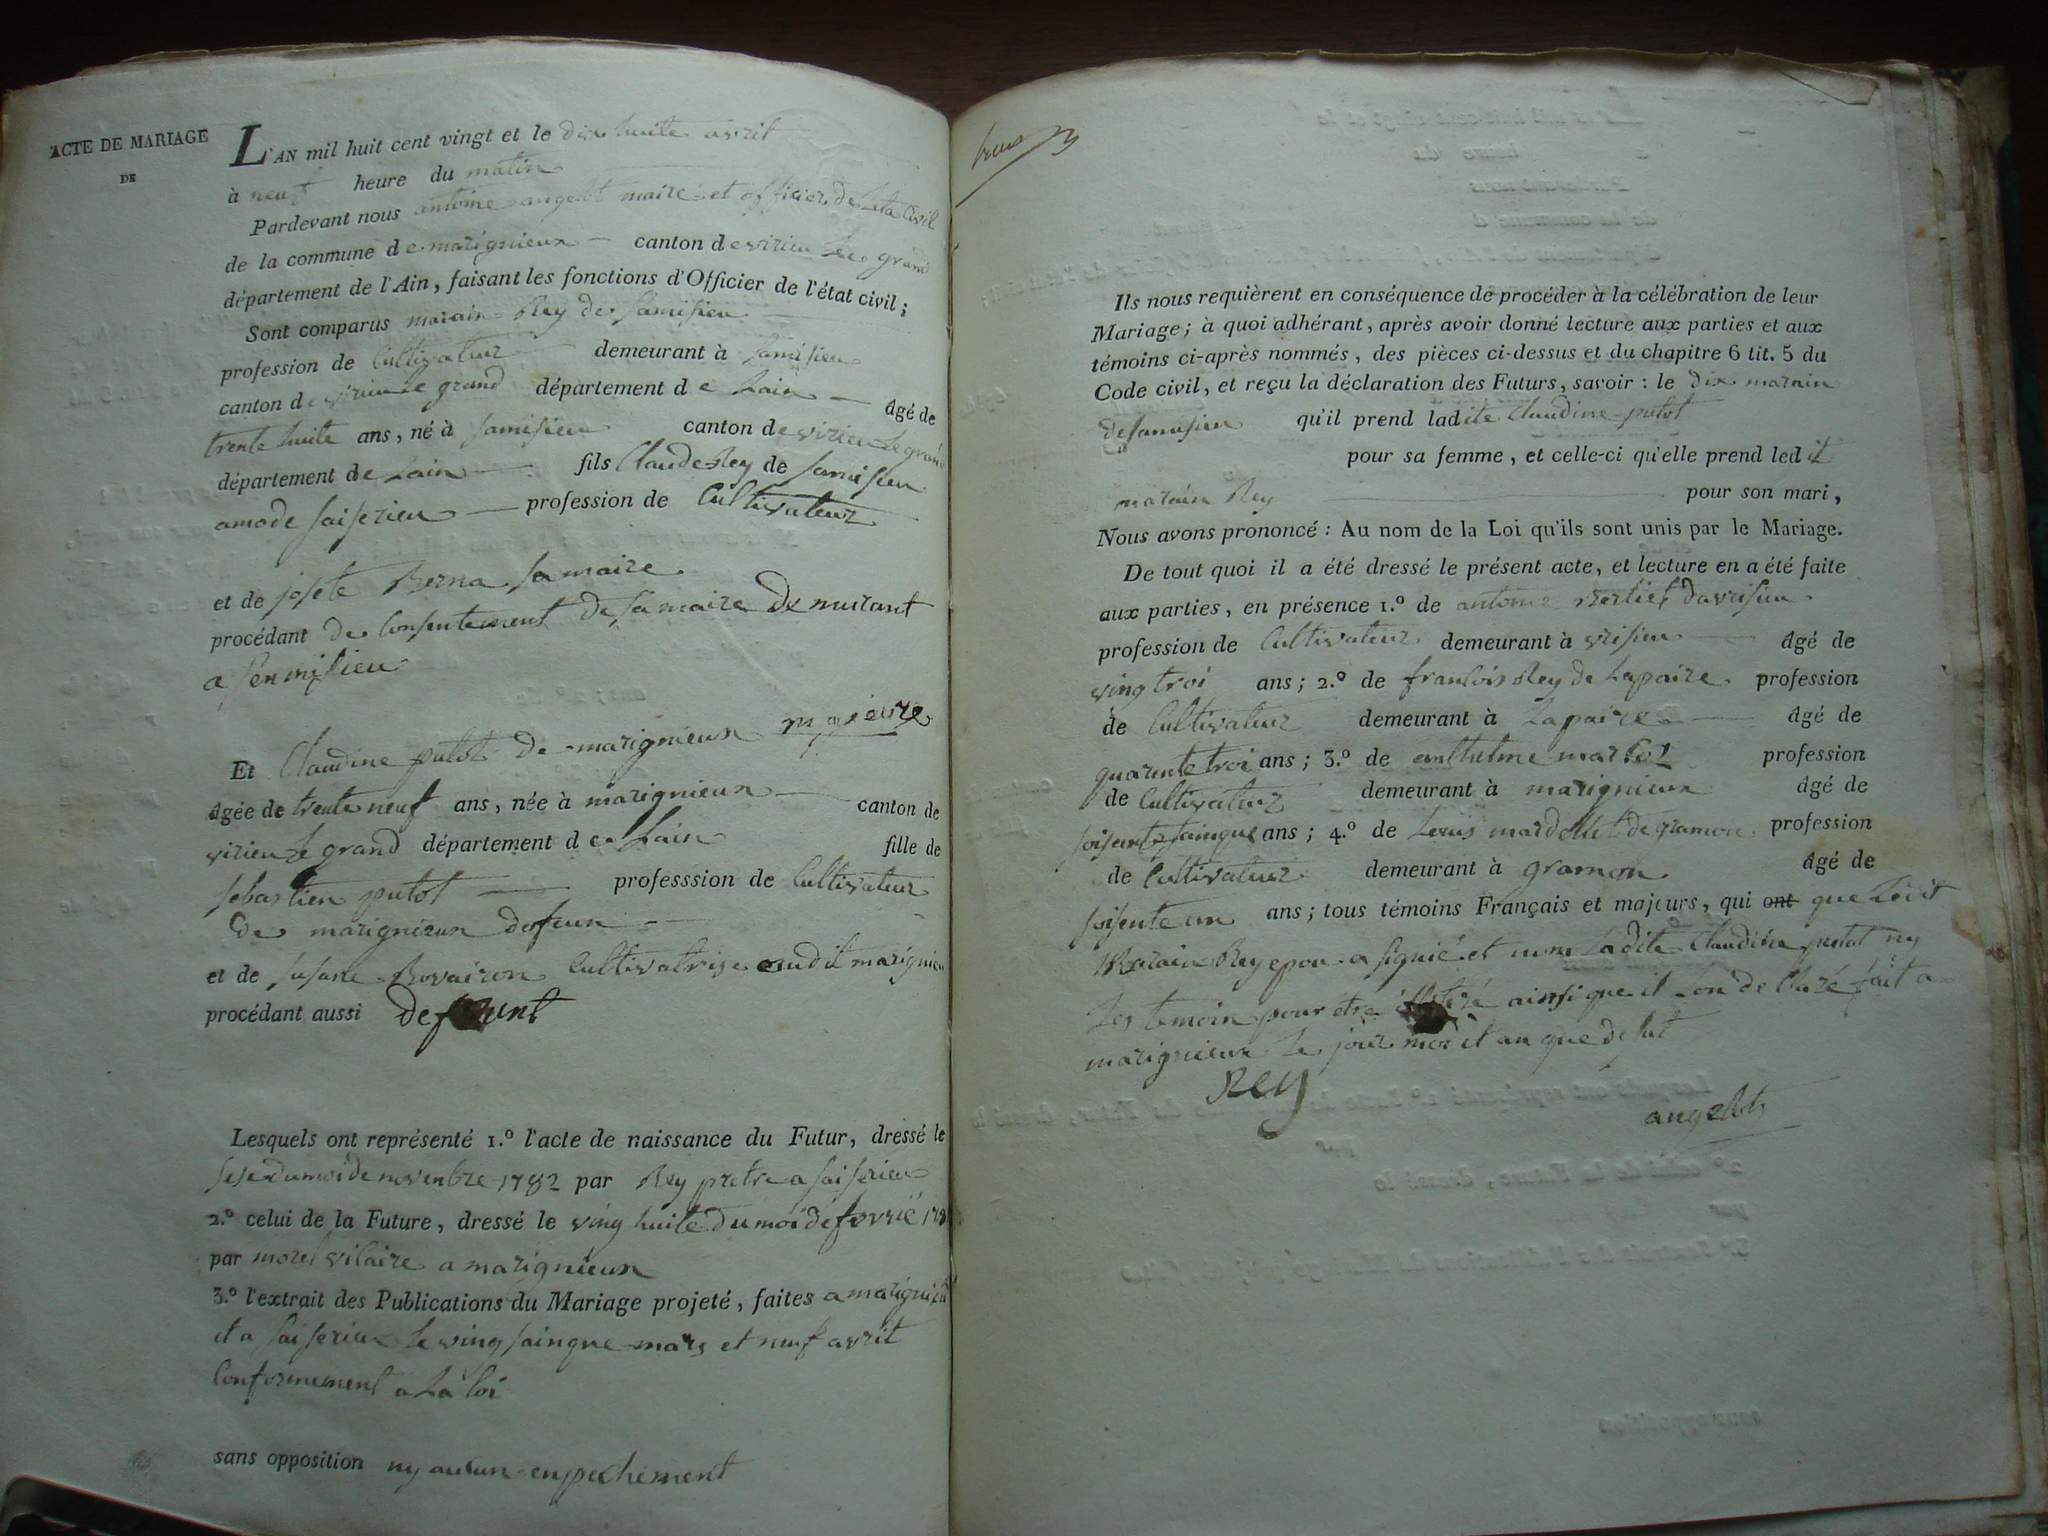 ACTE DE MARIAGE
DE
L'AN mil huit cent vingt et le dix huite avrit
à neuf heure du matin
Pardevant nous antoine angelot maire et officier de Leta Civil
de la commune de marignieux canton de virieu Le grand
département de l'Ain, faisant les fonctions d'Officier de l'état civil;
Sont comparus marain Rey de samisieu
profession de Cultivateur demeurant à samisieu
canton de virieu Le grand département de Lain âgé de
trente huite ans, né à samisieu canton de virieu Le grand
département de Lain fils Claude Rey de samisieu
amode saiserieu profession de Cultivateur
et de josete Berna sa maire
procédant de Consentement de sa maire demurant
a senmisieu
Et Claudine putot de marignieux majeure
âgée de trente neuf ans, née à marignieux canton de
virieu Le grand département de Lain fille de
sebastien putot professsion de Cultivateur
de marignieux defeun
et de susane Rovairon Cultivatrise audit marignieu
procédant aussi defunt
Lesquels ont représenté 1.º l'acte de naissance du Futur, dressé le
sese du moi de novenbre 1782 par Rey pretre a saiserieu
2.º celui de la Future, dressé le ving huite du moi de fevrié
par morel vicaire a marignieux
3.º l'extrait des Publications du Mariage projeté, faites a marignieu
et a saiserieu Le ving sainque mars et neuf avrit
Conformement a La loi
sans opposition ny aucun enpechement
Ils nous requièrent en conséquence de procéder à la célébration de leur
Mariage; à quoi adhérant, après avoir donné lecture aux parties et aux
témoins ci-après nommés, des pièces ci-dessus et du chapitre 6 tit. 5 du
Code civil, et reçu la déclaration des Futurs, savoir: le dix marain
de samisieu qu'il prend ladite Claudine putot
pour sa femme, et celle-ci qu'elle prend ledit
marain Rey pour son mari,
Nous avons prononcé: Au nom de la Loi qu'ils sont unis par le Mariage.
De tout quoi il a été dressé le présent acte, et lecture en a été faite
aux parties, en présence 1.º de antoine Bertiet davrisieu
profession de Cultivateur demeurant à vrisieu âgé de
ving troi ans; 2.º de francois Rey de Lapaire profession
de Cultivateur demeurant à Lapaire âgé de
quarente troi ans; 3.º de anthelme martot profession
de Cultivateur demeurant à marignieux âgé de
soisente sainque ans; 4.º de Louis mardollet de gramon profession
de Cultivateur demeurant à gramon âgé de
soisente un ans; tous témoins Français et majeurs, qui ont que Ledit
Marain Rey epou a signié et non Ladite Claudine putot ny
Les temoin pour etre ainsi que il Lon de Claré fait a
marignieux Le jour moi et an que desut
Rey
angelot